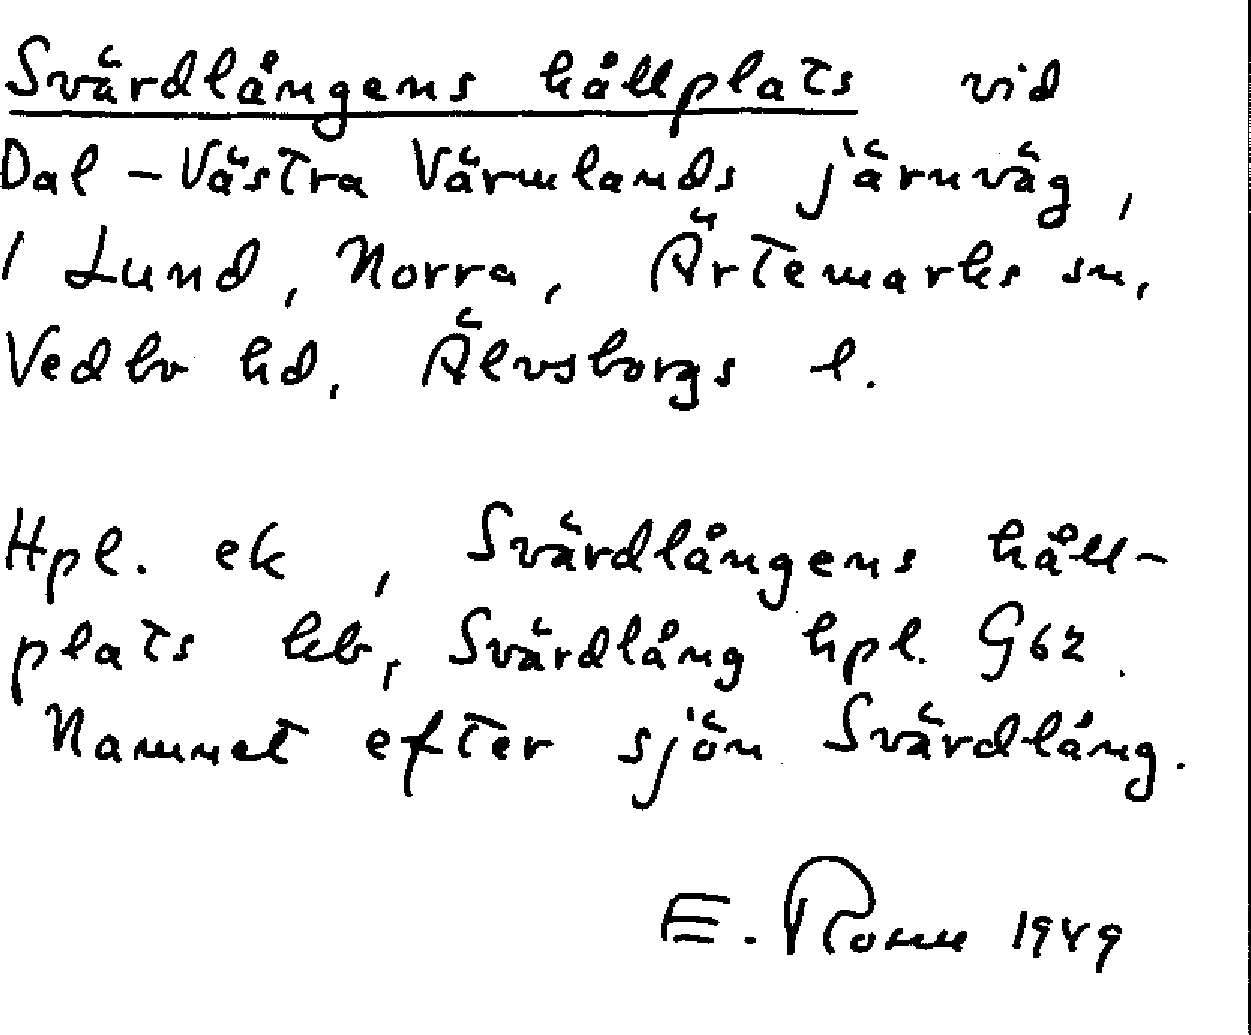 Svärdlångens hållplats vid
Dal - Västra Värmlands järnväg,
/ Lund, Norra, Ärtemarks sn,
Vedbo hd, Älvsborgs l.
Hpl. ek, Svärdlångens håll-
plats kb, Svärdlång hpl. G62.
Namnet efter sjön Svärdlång.
E. 1949